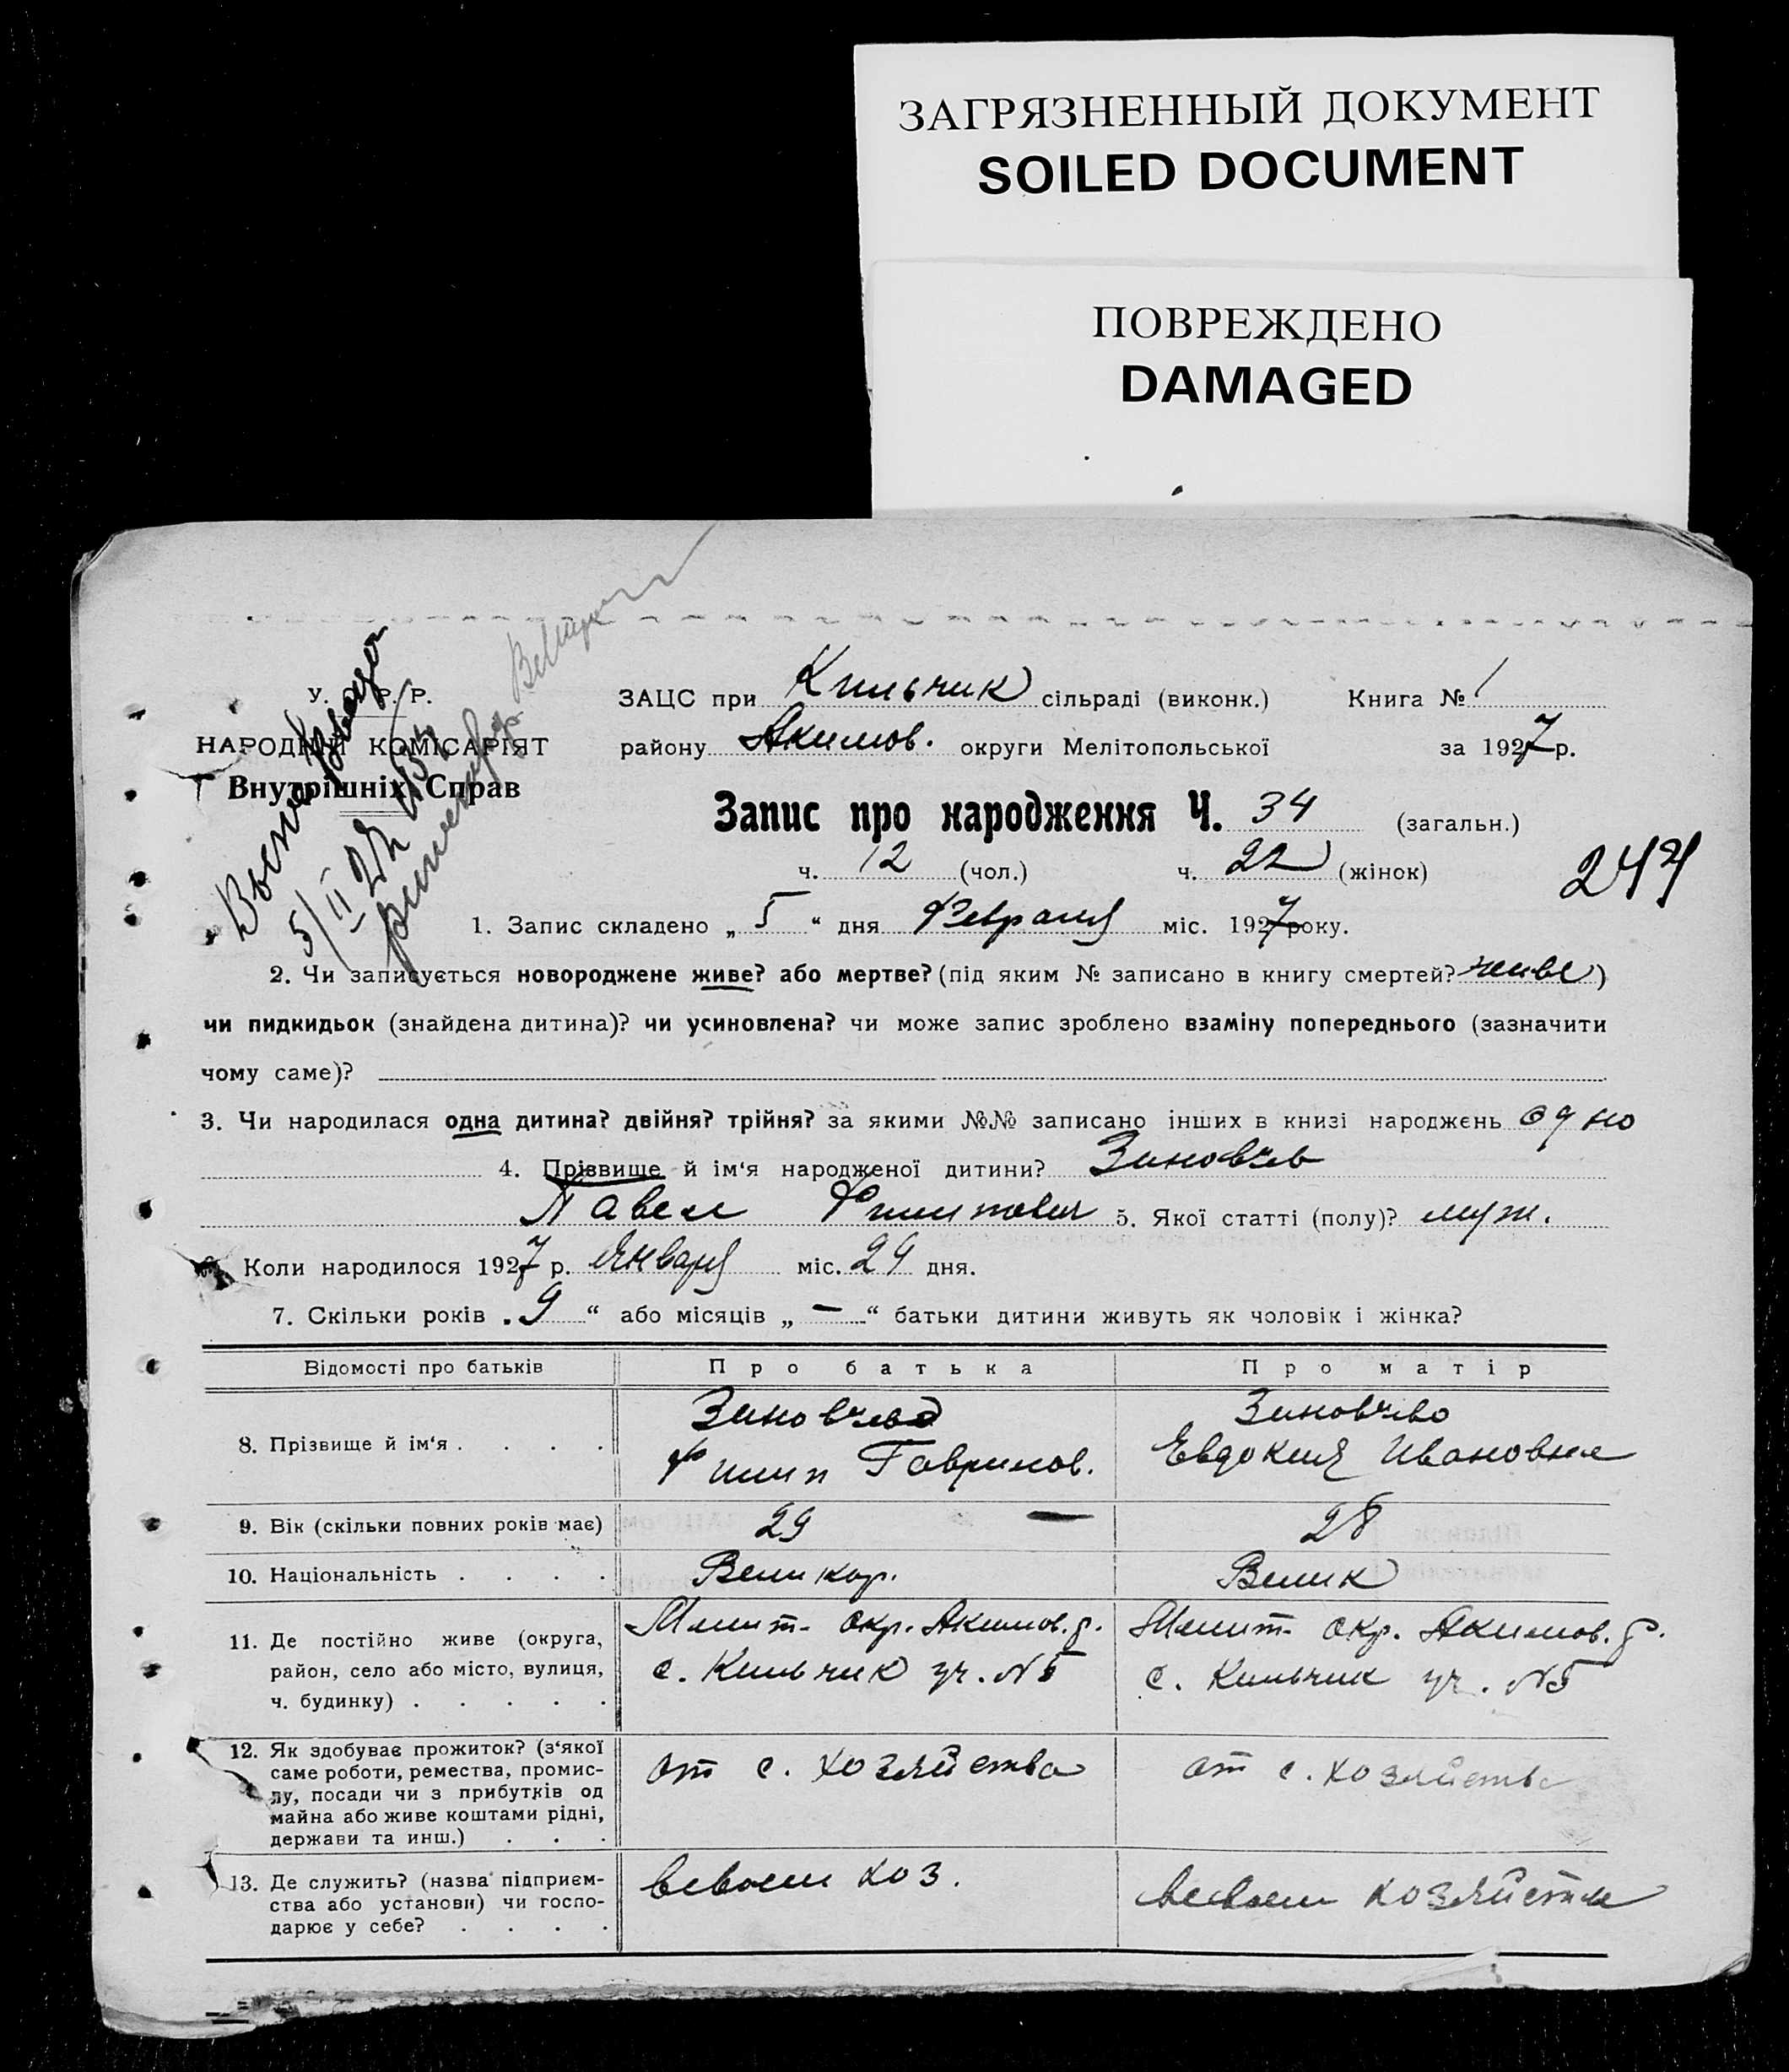 ЗАГРЯЗНЕННЫЙ ДОКУМЕНТ
SOILED DOCUMENT
ПОВРЕЖДЕНО
DAMAGED
У. Р. Р.
НАРОДНІЙ КОМІСАРІЯТ
Внутрішніх Справ
ЗАЦС при Кильчик сільраді (виконк.) Книга № 1
району Акимов. округи Мелітопольської за 1927 р.
Запис про народження Ч. 34 (загальн.)
ч. 12 (чол.) ч. 22 (жінок)
244
1. Запис складено „ 5 “ дня Февраля міс. 1927 року.
2. Чи записується новороджене живе? або мертве? (під яким № записано в книгу смертей? живе)
чи пидкидьок (знайдена дитина)? чи усиновлена? чи може запис зроблено взаміну попереднього (зазначити
чому саме)?
3. Чи народилася одна дитина? двійня? трійня? за якими №№ записано інших в книзі народжень одно
4. Прізвище й ім‘я народженої дитини? Зиновчев
Павел Филипович 5. Якої статті (полу)? муж.
Коли народилося 1927 р. Января міс. 24 дня.
7. Скільки років „ 9 “ або місяців „ — “ батьки дитини живуть як чоловік і жінка?
Відомості про батьків Про батька Про матір
8. Прізвище й ім‘я . . . . Зиновчев Зиновчево
Филип Гаврилов. Евдокия Ивановна
9. Вік (скільки повних років має) 29 — 28
10. Національність . . . . Великор. Велик
11. Де постійно живе (округа, район, село або місто, вулиця, ч. будинку) . . . . .
Мелит. окр. Акимов. р. Мелит. окр. Акимов. р.
с. Кильчик уч. №5 с. Кильчик уч. №5
12. Як здобуває прожиток? (з‘якої саме роботи, ремества, промислу, посади чи з прибутків од майна або живе коштами рідні, держави та инш.) . . .
от с. хозяйства от с. хозяйства
13. Де служить? (назва підприємства або установи) чи господарює у себе? . . . .
всвоем хоз. всвоем хозяйстве